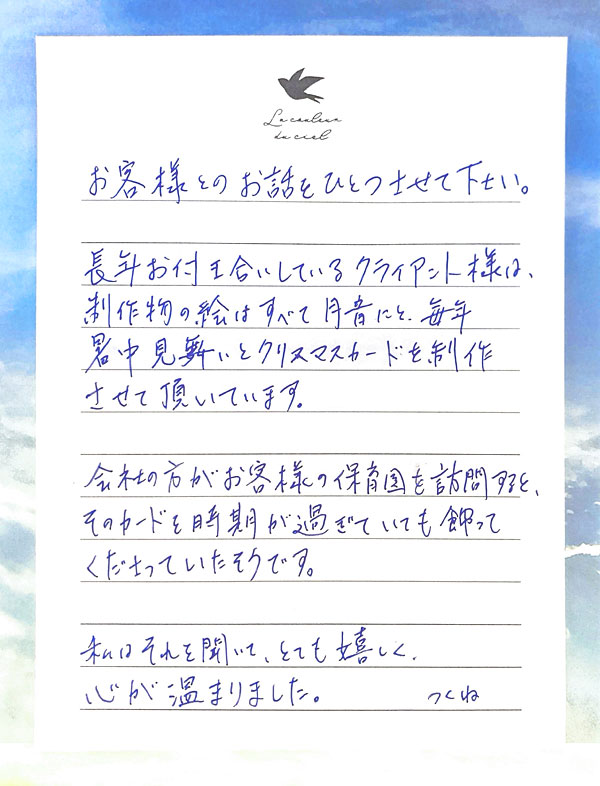 La couleur
du ciel
お客様とのお話をひとつさせて下さい。
長年お付き合いしているクライアント様は、
制作物の絵はすべて月音にと、毎年
暑中見舞いとクリスマスカードを制作
させて頂いています。
会社の方がお客様の保育園を訪問すると、
そのカードを時期が過ぎていても飾って
くださっていたそうです。
私はそれを聞いて、とても嬉しく、
心が温まりました。 つくね